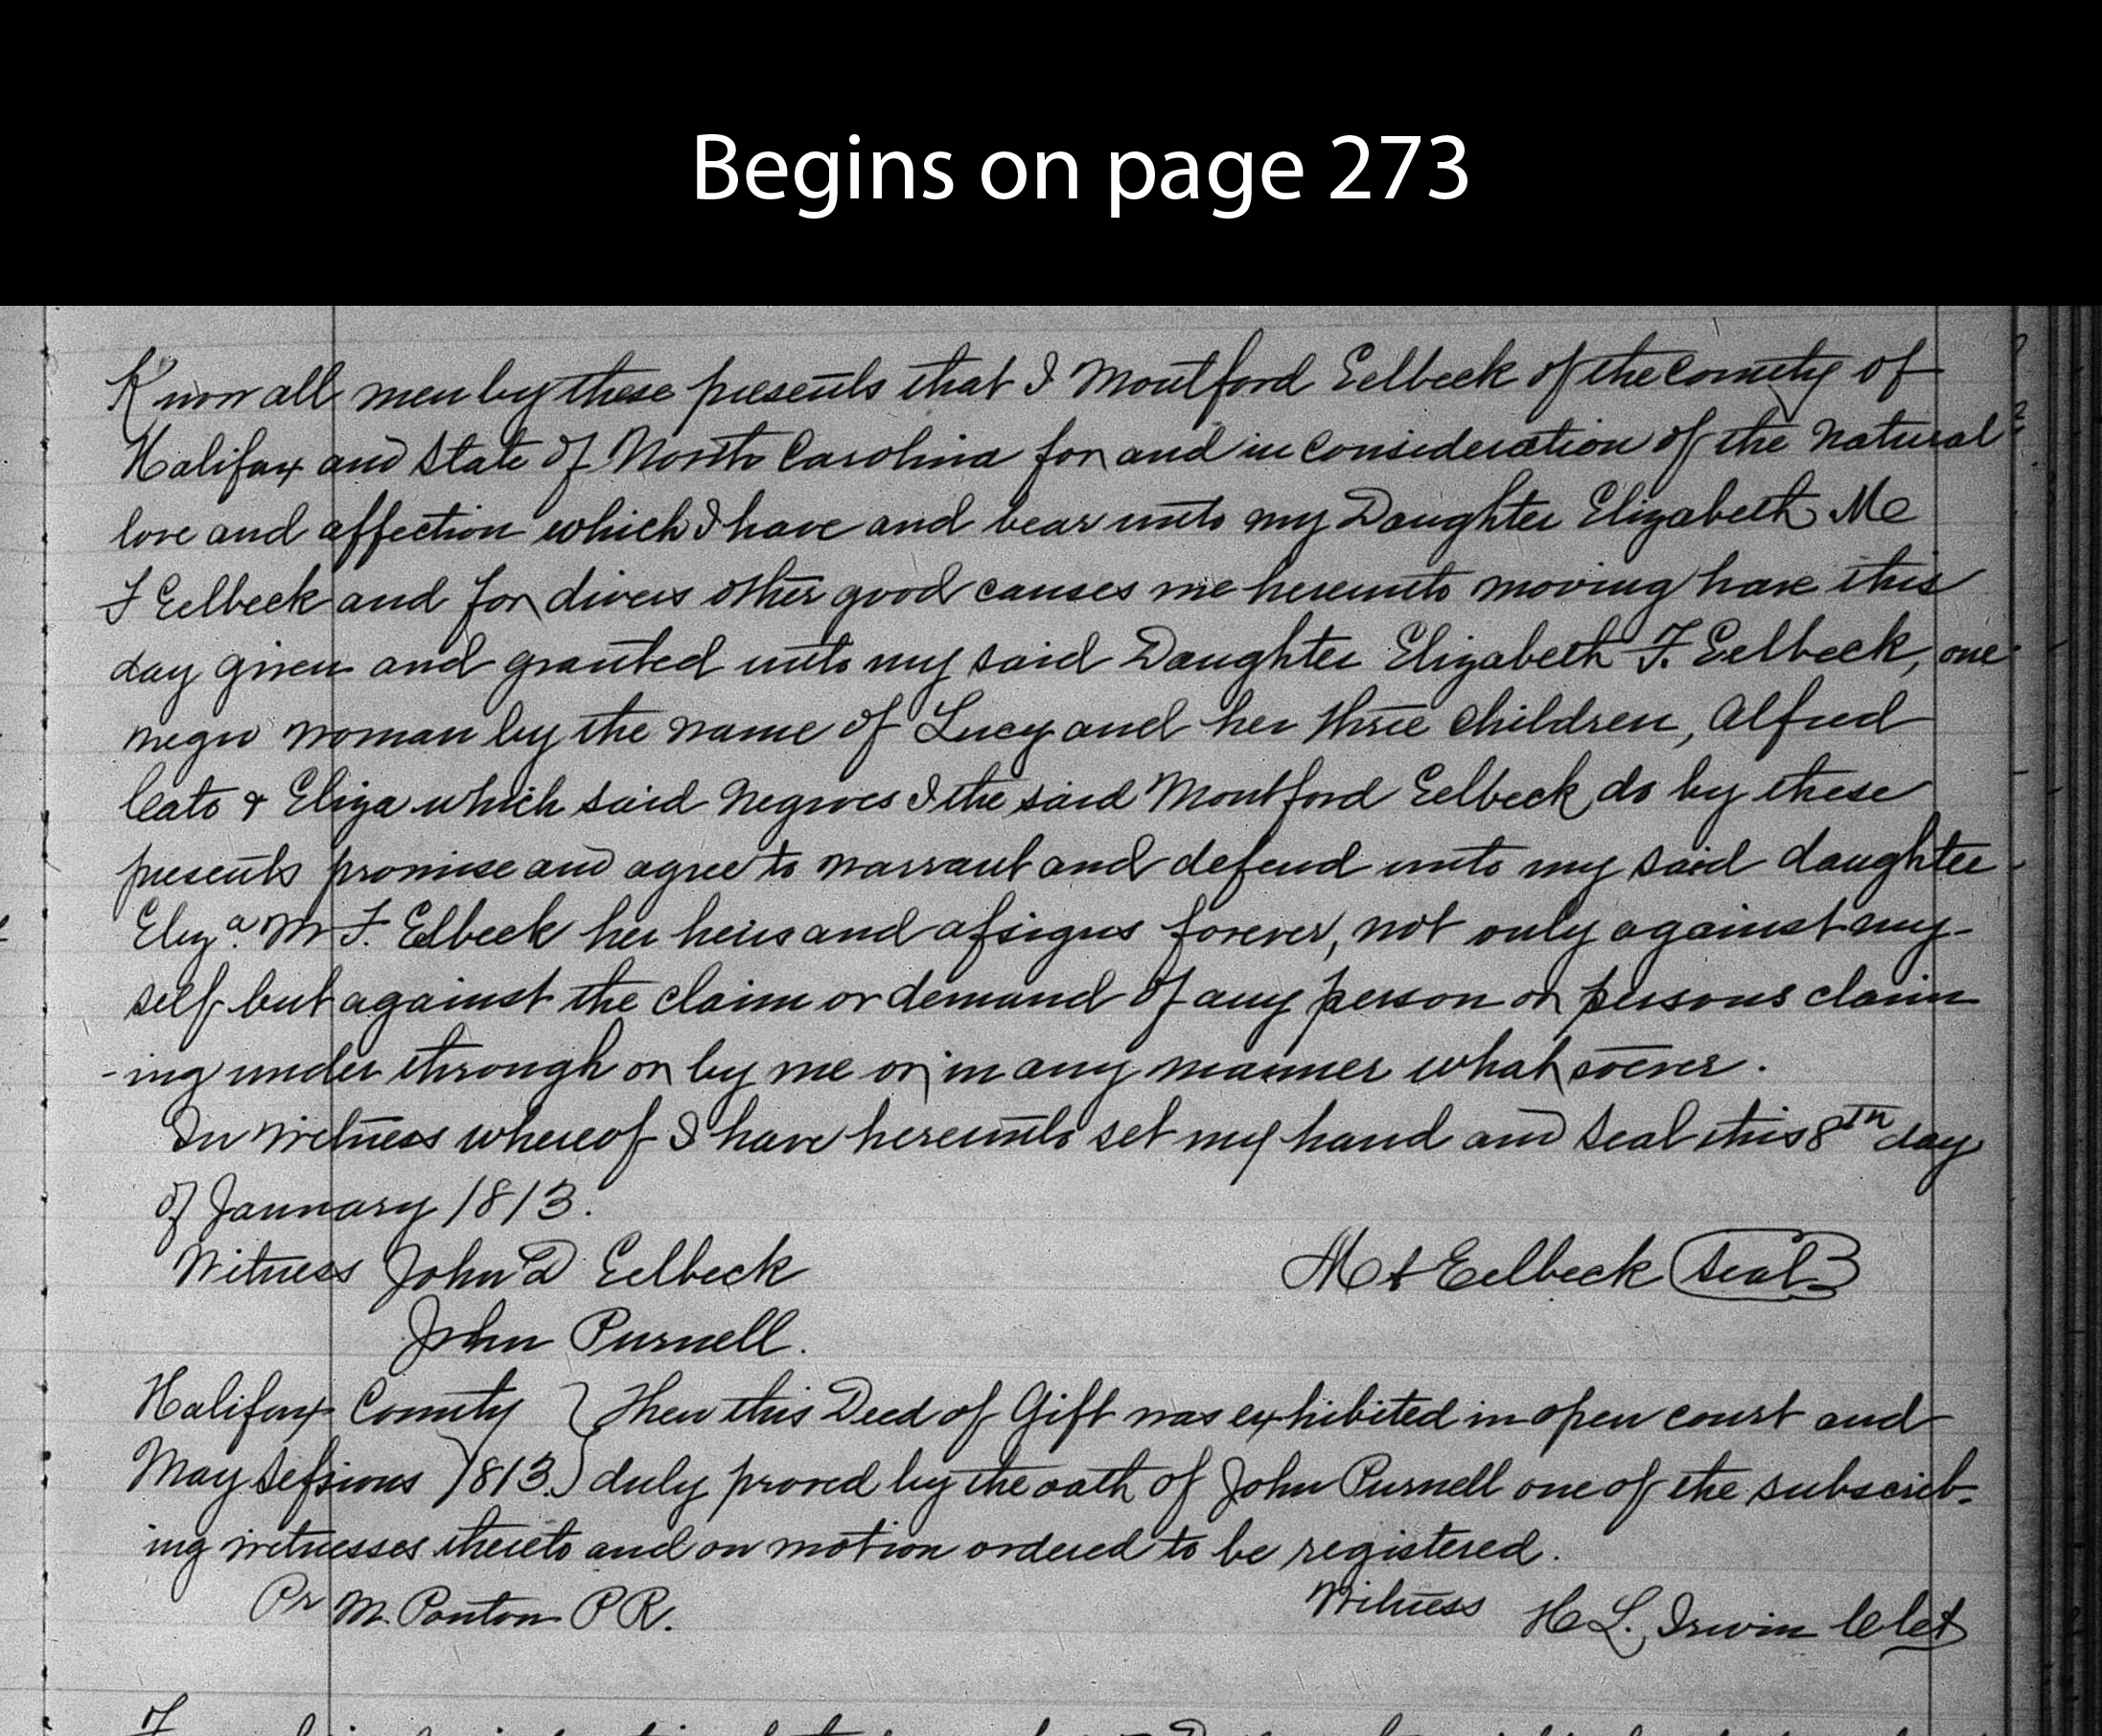 Begins on page 273
Know all men by these presents that I Montford Eelbeck of the County of
Halifax and State of North Carolina for and in consideration of the Natural
love and affection which I have and bear unto my Daughter Elizabeth Mc
F Eelbeck and for divers other good causes me hereunto moving have this
day given and granted unto my said Daughter Elizabeth F. Eelbeck, one
negro woman by the name of Lucy and her three children, Alfred
Cato & Eliza which said Negroes I the said Montford Eelbeck do by these
presents promise and agree to warrant and defend unto my said daughter
Eliza. M F. Elbeck her heirs and assigns forever, not only against my-
self but against the claim or demand of any person or persons claim
-ing under through or by me or in any manner what soever.
In witness whereof I have hereunto set my hand and seal this 8th day
of January 1813.
Witness John D Eelbeck Mt Eelbeck Seal
John Purnell.
Halifax County } Then this Deed of Gift was exhibited in open court and
May Sessions 1813. } duly proved by the oath of John Purnell one of the subscrib-
ing witnesses thereto and on motion ordered to be registered.
Pr M. Ponton P R. Witness H L. Irwin